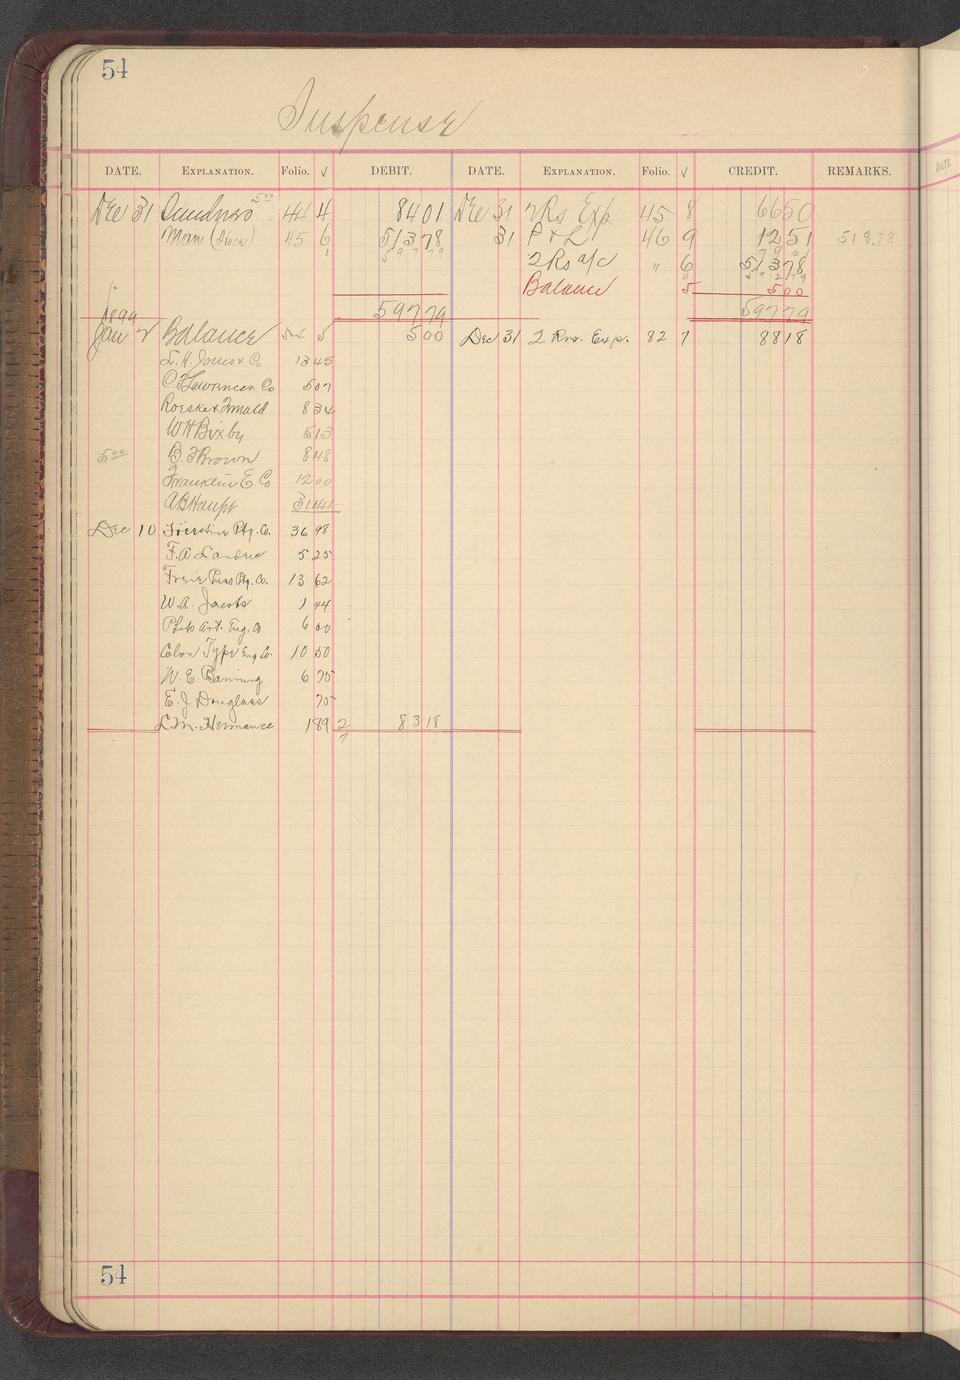 54
Suspense
DATE. EXPLANATION. Folio. √ DEBIT. DATE. EXPLANATION. Folio. √ CREDIT. REMARKS.
Dec 31 Sundries 5 00 44 4 8401 Dec 31 2 Rs Exp 45 8 6650
Man (Stock) 45 6 51378 31 P & L 46 9 1251 518.78
59779 2 Rs a/c " 6 51378
Balance 5 500
59779 59779
1899
Jan 2 Balance 5 500 Dec 31 2 Rns. Exp. 82 7 8818
T. H. Jones & Co 13 45
C. F. Lawrence & Co 5 07
Roeske & 8 34
W H Bixby 5 13
5 00 B. F Brown 8 48
Franklin E. Co 12 00
A B Haupt 31 44
Dec 10 Ptg. Co. 36 98
F. A. 5 25
Freie Press Ptg. Co. 13 62
W. A. Jacobs 1 44
Photo Art. Eng. Co 6 00
Colon Type Eng Co. 10 50
W. E. Banning 6 75
E. J. Douglass 75
L. M. Hermance 1 89 2 8318
7
54